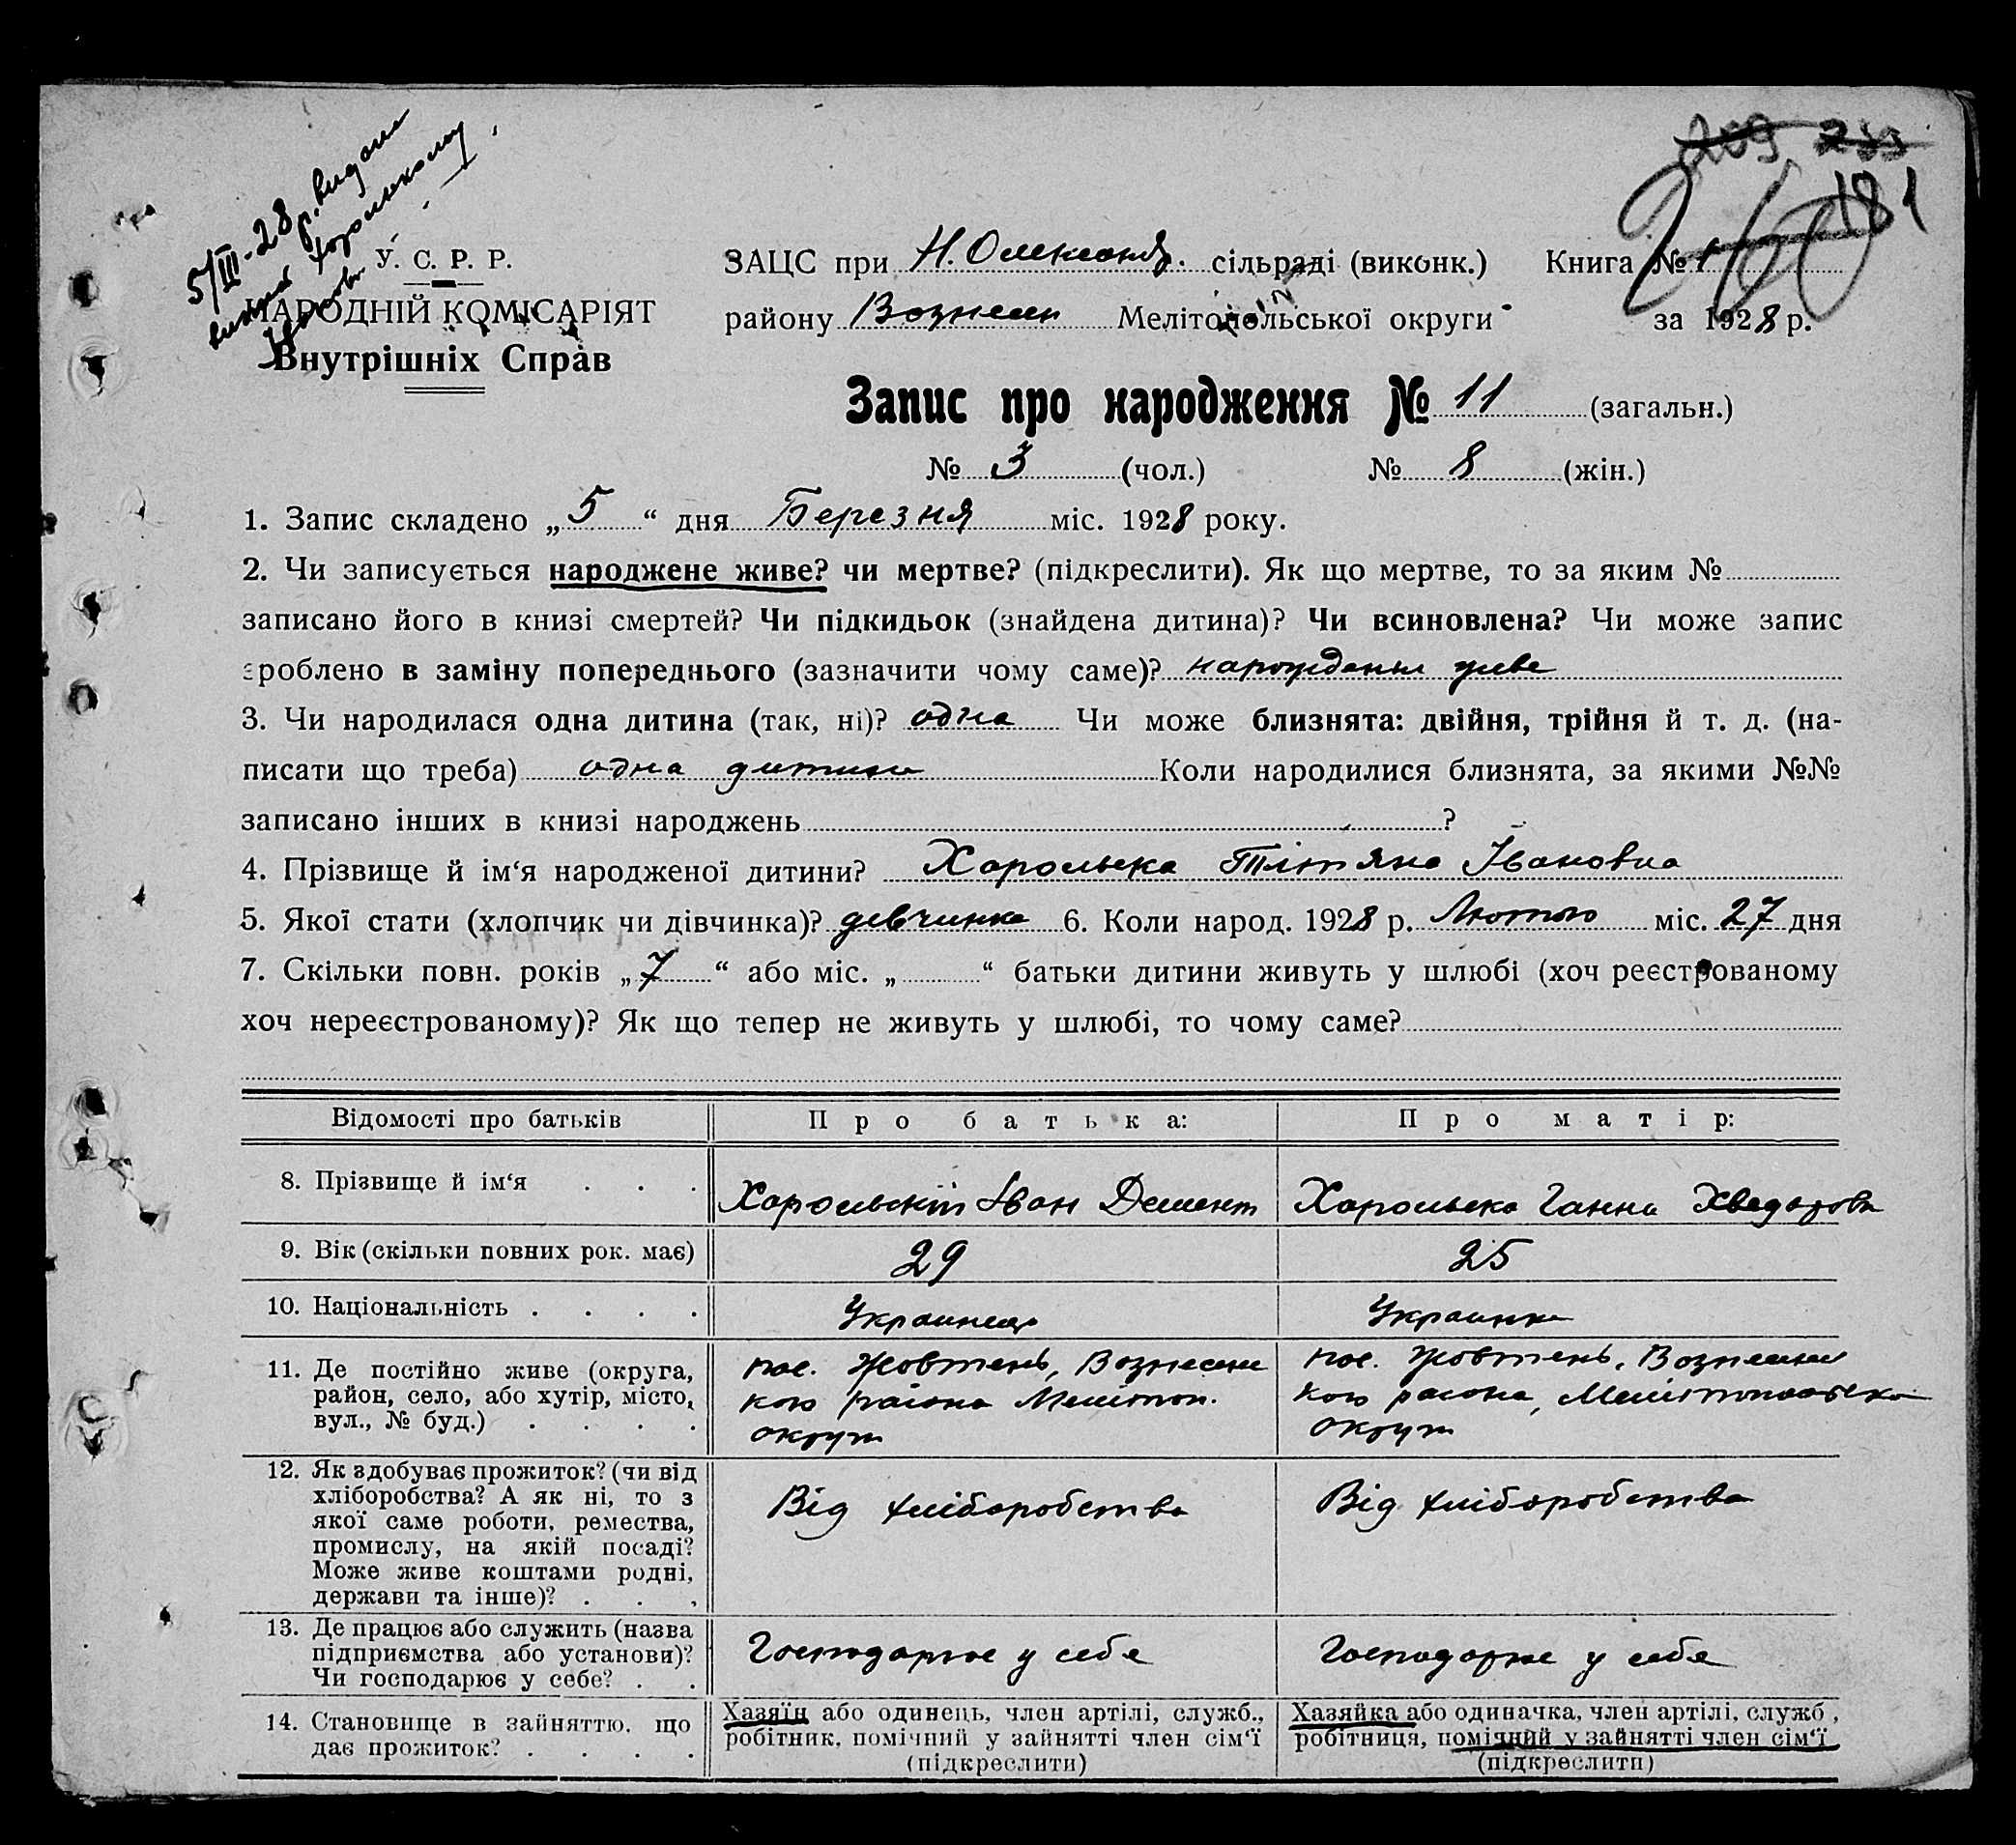 5/III-28 р. видано
У. С. Р. Р.
НАРОДНІЙ КОМІСАРІЯТ
Внутрішніх Справ
209 233
260 181
ЗАЦС при Н. Олександр. сільраді (виконк.) Книга №
району Вознесен Мелітопольської округи за 1928 р.
Запис про народження № 11 (загальн.)
№ 3 (чол.) № 8 (жін.)
1. Запис складено „5“ дня Березня міс. 1928 року.
2. Чи записується народжене живе? чи мертве? (підкреслити). Як що мертве, то за яким №
записано його в книзі смертей? Чи підкидьок (знайдена дитина)? Чи всиновлена? Чи може запис
зроблено в заміну попереднього (зазначити чому саме)? живе
3. Чи народилася одна дитина (так, ні)? одна Чи може близнята: двійня, трійня й т. д. (на-
писати що треба) одна дитина Коли народилися близнята, за якими №№
записано інших в книзі народжень ?
4. Прізвище й ім‘я народженої дитини? Харольска Тітяна Івановна
5. Якої стати (хлопчик чи дівчинка)? девчинка 6. Коли народ. 1928 р. Лютого міс. 27 дня
7. Скільки повн. років „7“ або міс. „ “ батьки дитини живуть у шлюбі (хоч реєстрованому
хоч нереєстрованому)? Як що тепер не живуть у шлюбі, то чому саме?
Відомості про батьків Про батька: Про матір:
8. Прізвище й ім‘я . . . Харольский Іван Демент Харольска Ганна Хведорова
9. Вік (скільки повних рок. має) 29 25
10. Національність . . . . Украинець Украинка
11. Де постійно живе (округа, район, село, або хутір, місто, вул., № буд.) . . . .
пос. Жовтень, Вознесенс
кого района Мелітоп.
округи
пос. Жовтень, Вознесенс
кого района, Мелітопольско
округи
12. Як здобуває прожиток? (чи від хліборобства? А як ні, то з якої саме роботи, ремества, промислу, на якій посаді? Може живе коштами родні, держави та інше)? . . .
Від хліборобства Від хліборобства
13. Де працює або служить (назва підприємства або установи)? Чи господарює у себе? . .
Господарює у себе Господарює у себе
14. Становище в зайняттю, що дає прожиток? . . . .
Хазяїн або одинець, член артілі, служб., робітник, помічний у зайнятті член сім‘ї (підкреслити)
Хазяйка або одиначка, член артілі, служб., робітниця, помічний у зайнятті член сім‘ї (підкреслити)